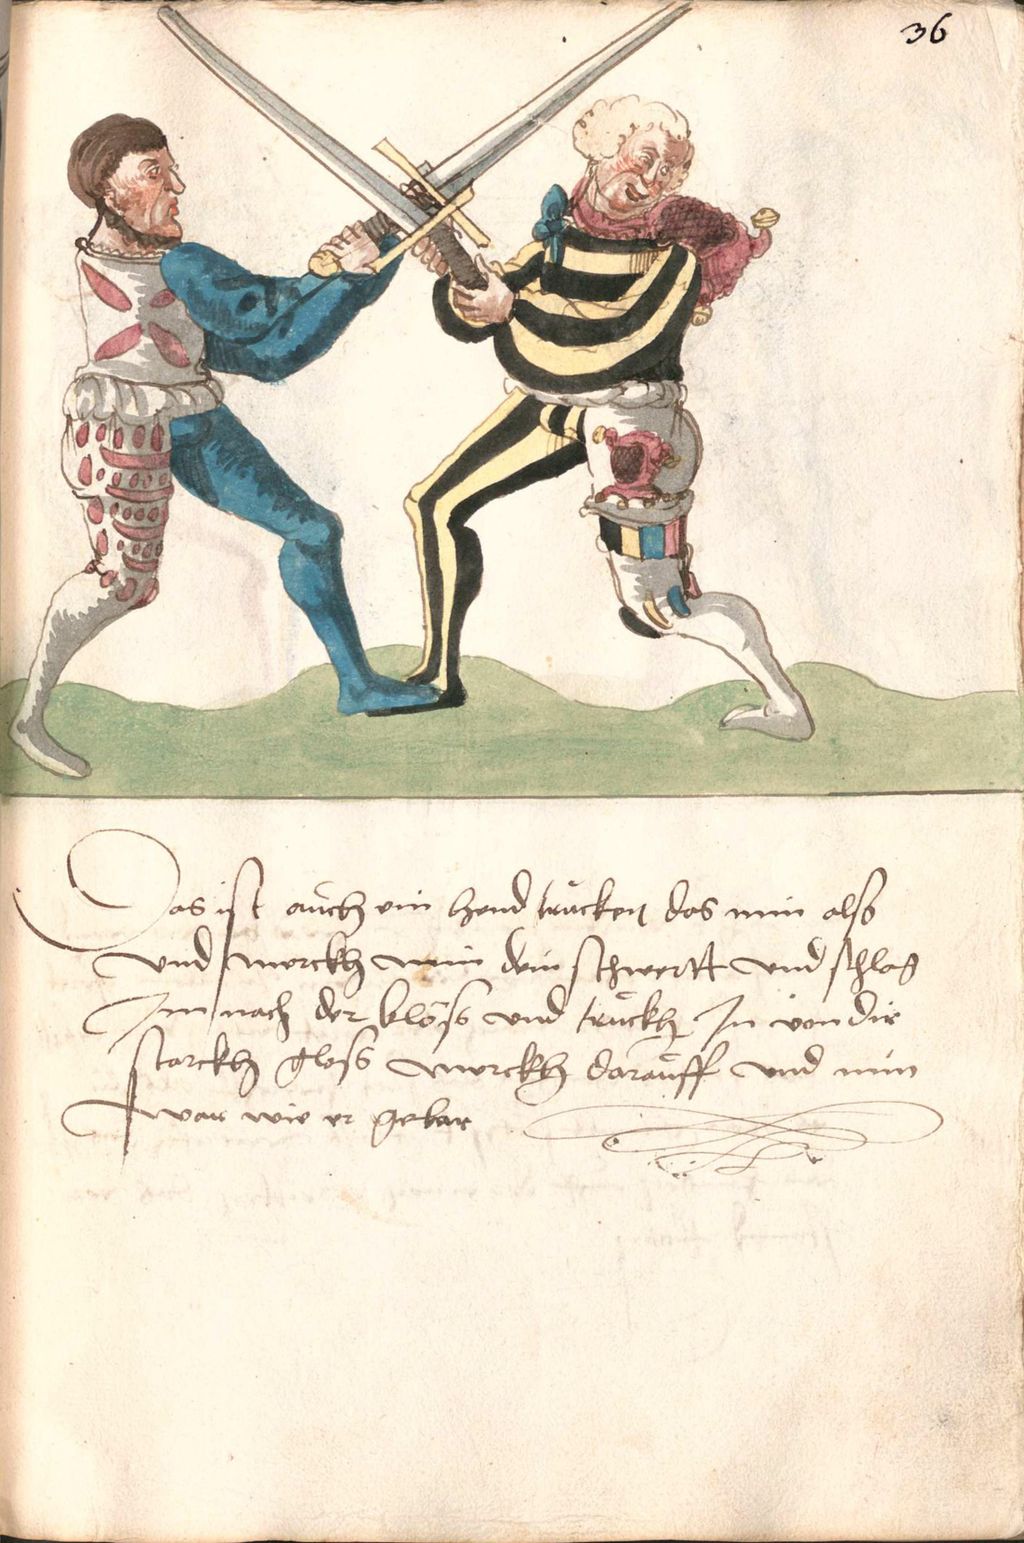 36
Das ist aŭch ein hend trŭcken das nim also
vnd merckh nim dein schwertt vnd schlag
Im nach der blöss vnd trŭckh In von dir
starckh gloss merckh daraŭff vnd nim
war wie er gebar